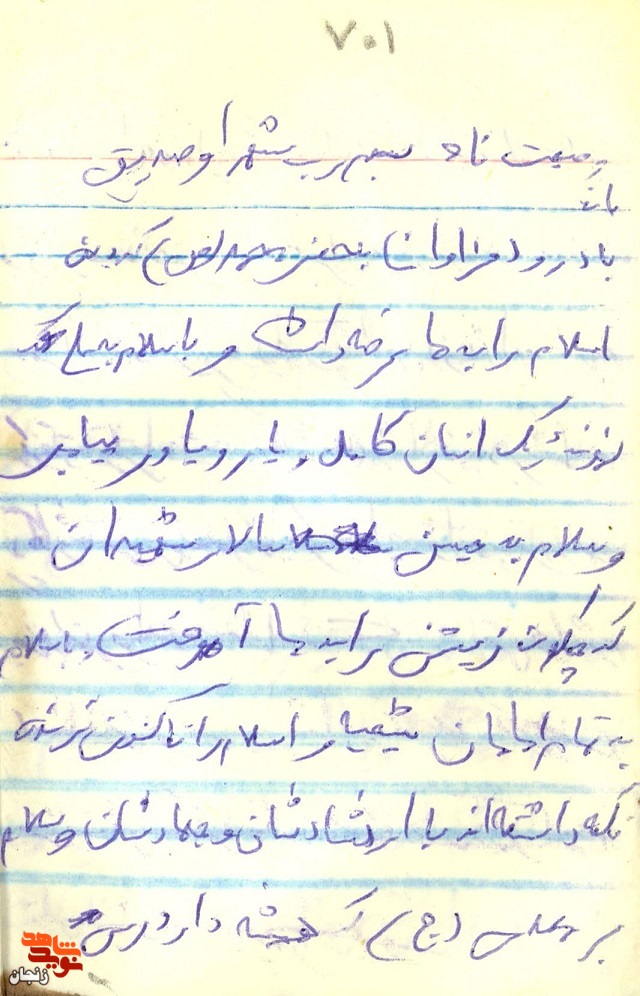 ۷۰۱
وصیت نامه بسم رب شهدا و صدیق
با درود فراوان به حضرت محمد (ص) که دین
اسلام را به ما عرضه داشت و با سلام به علی که
نمونه یک انسان کامل و یار و یاور پیامبر
و سلام به حسین سالار شهیدان
که چگونه زیستن را به ما آموخت و با سلام
به تمام امامان شیعیان اسلام را تا کنون زنده
نگه داشته‌اند با ارشادشان و جهادشان و سلام
بر مهدی (عج) که همیشه دارد
نوید شاهد
زنجان